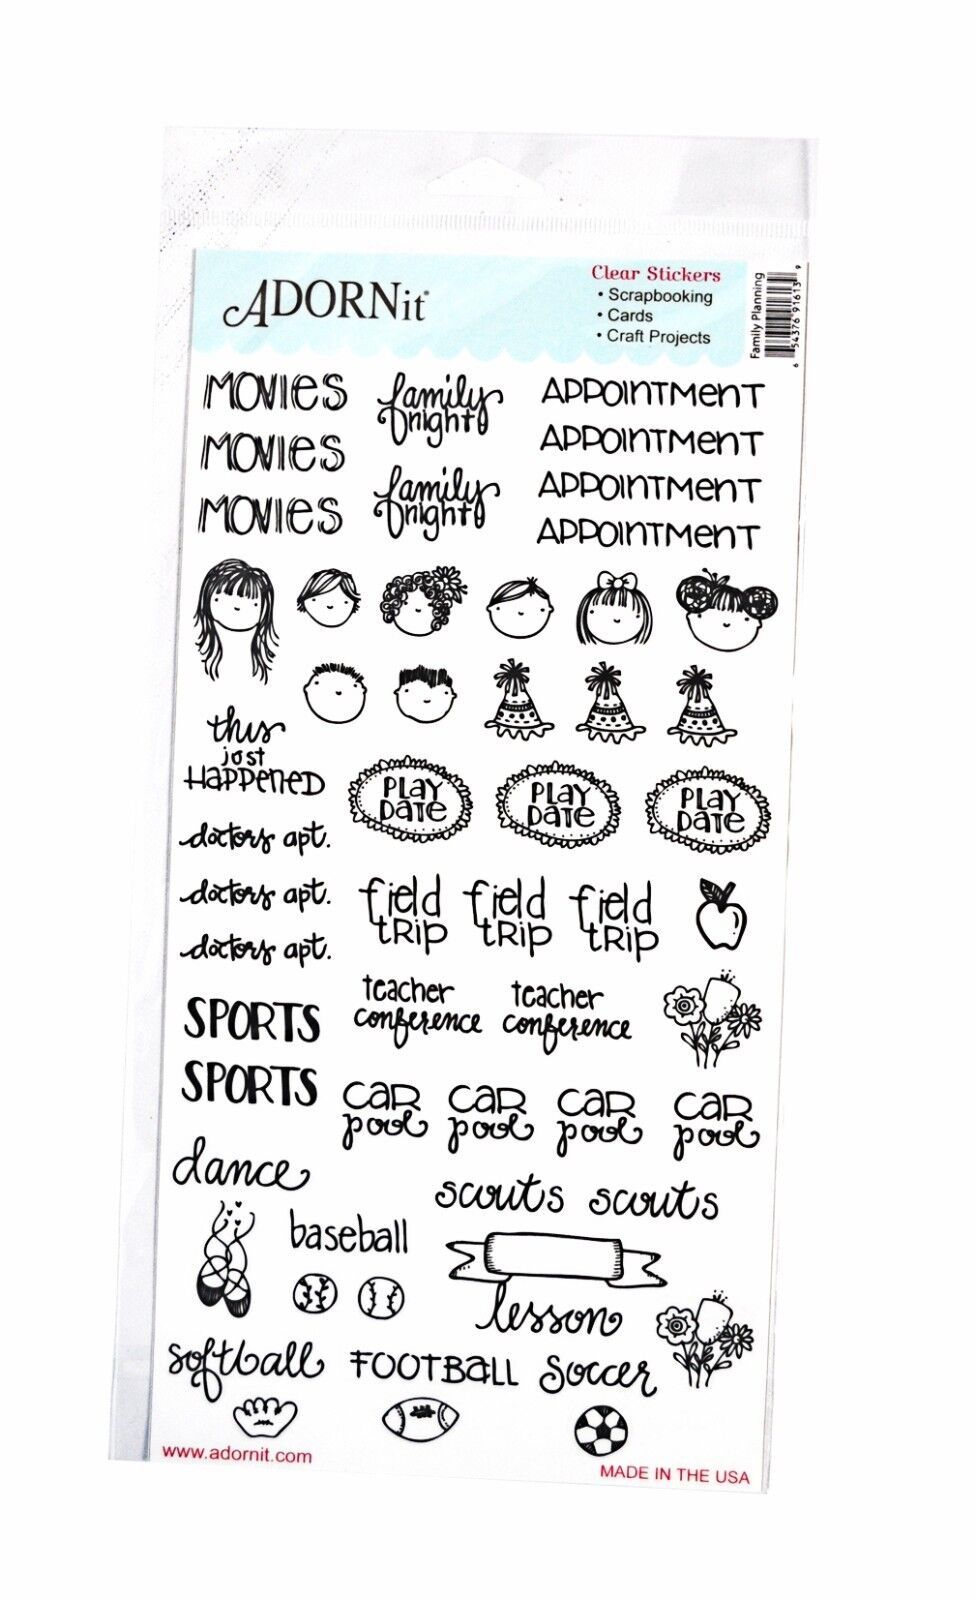 ADORNit
Clear Stickers
• Scrapbooking
• Cards
• Craft Projects
Family Planning
6 54376 91613 9
MOVIES
family night
APPOINTMENT
APPOINTMENT
MOVIES
family night
APPOINTMENT
MOVIES
APPOINTMENT
this
just
HAPPENED
PLAY DATE
PLAY DATE
PLAY DATE
doctors apt.
doctors apt.
field TRIP
field TRIP
field TRIP
doctors apt.
teacher conference
teacher conference
SPORTS
SPORTS
CAR pool
CAR pool
CAR pool
CAR pool
dance
scouts scouts
baseball
lesson
softball FOOTBALL Soccer
www.adornit.com
MADE IN THE USA